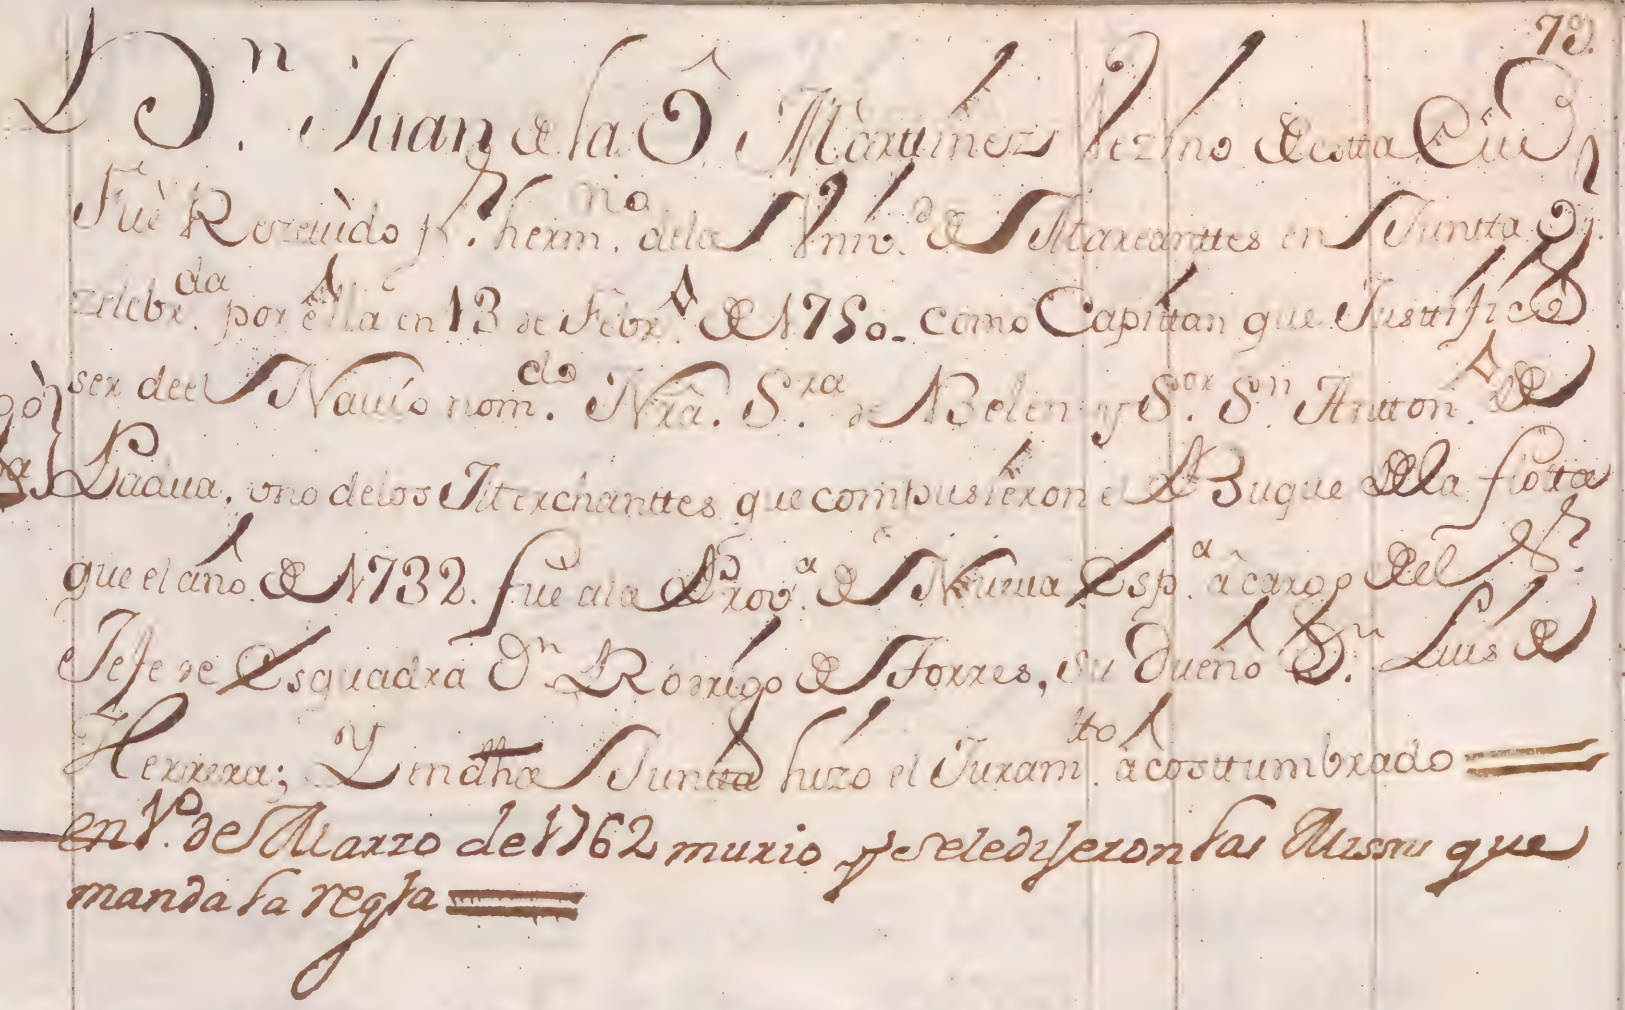 79.
Dn. Juan de la Ô Martinez Vezino de esta Ciud
Fuè Rezeuìdo pr. hermno. de la Vnivd. de Mareanttes en Juntta qe.
zelebrda. por ella en 13 de Febro. de 1750. como Capittan que Justtificò
ser de el Nauío nomdo. Nrâ. Sra. de Belen y Sor. Sn. Antton. de
Padua, vno de los Merchanttes que compusieron el Buque de la flotta
que el año de 1732. fuè a la Prova. de Nueua Espa. â cargo del Sr.
Jefe de Esquadra Dn. Rodrigo de Torres, su Dueño Dn. Luis de
Herrera; Y en dha Juntta hizo el Juramto. âcosttumbrado
en 1º. de Marzo de 1762 murio y se le dijeron las Missas que
manda la regla